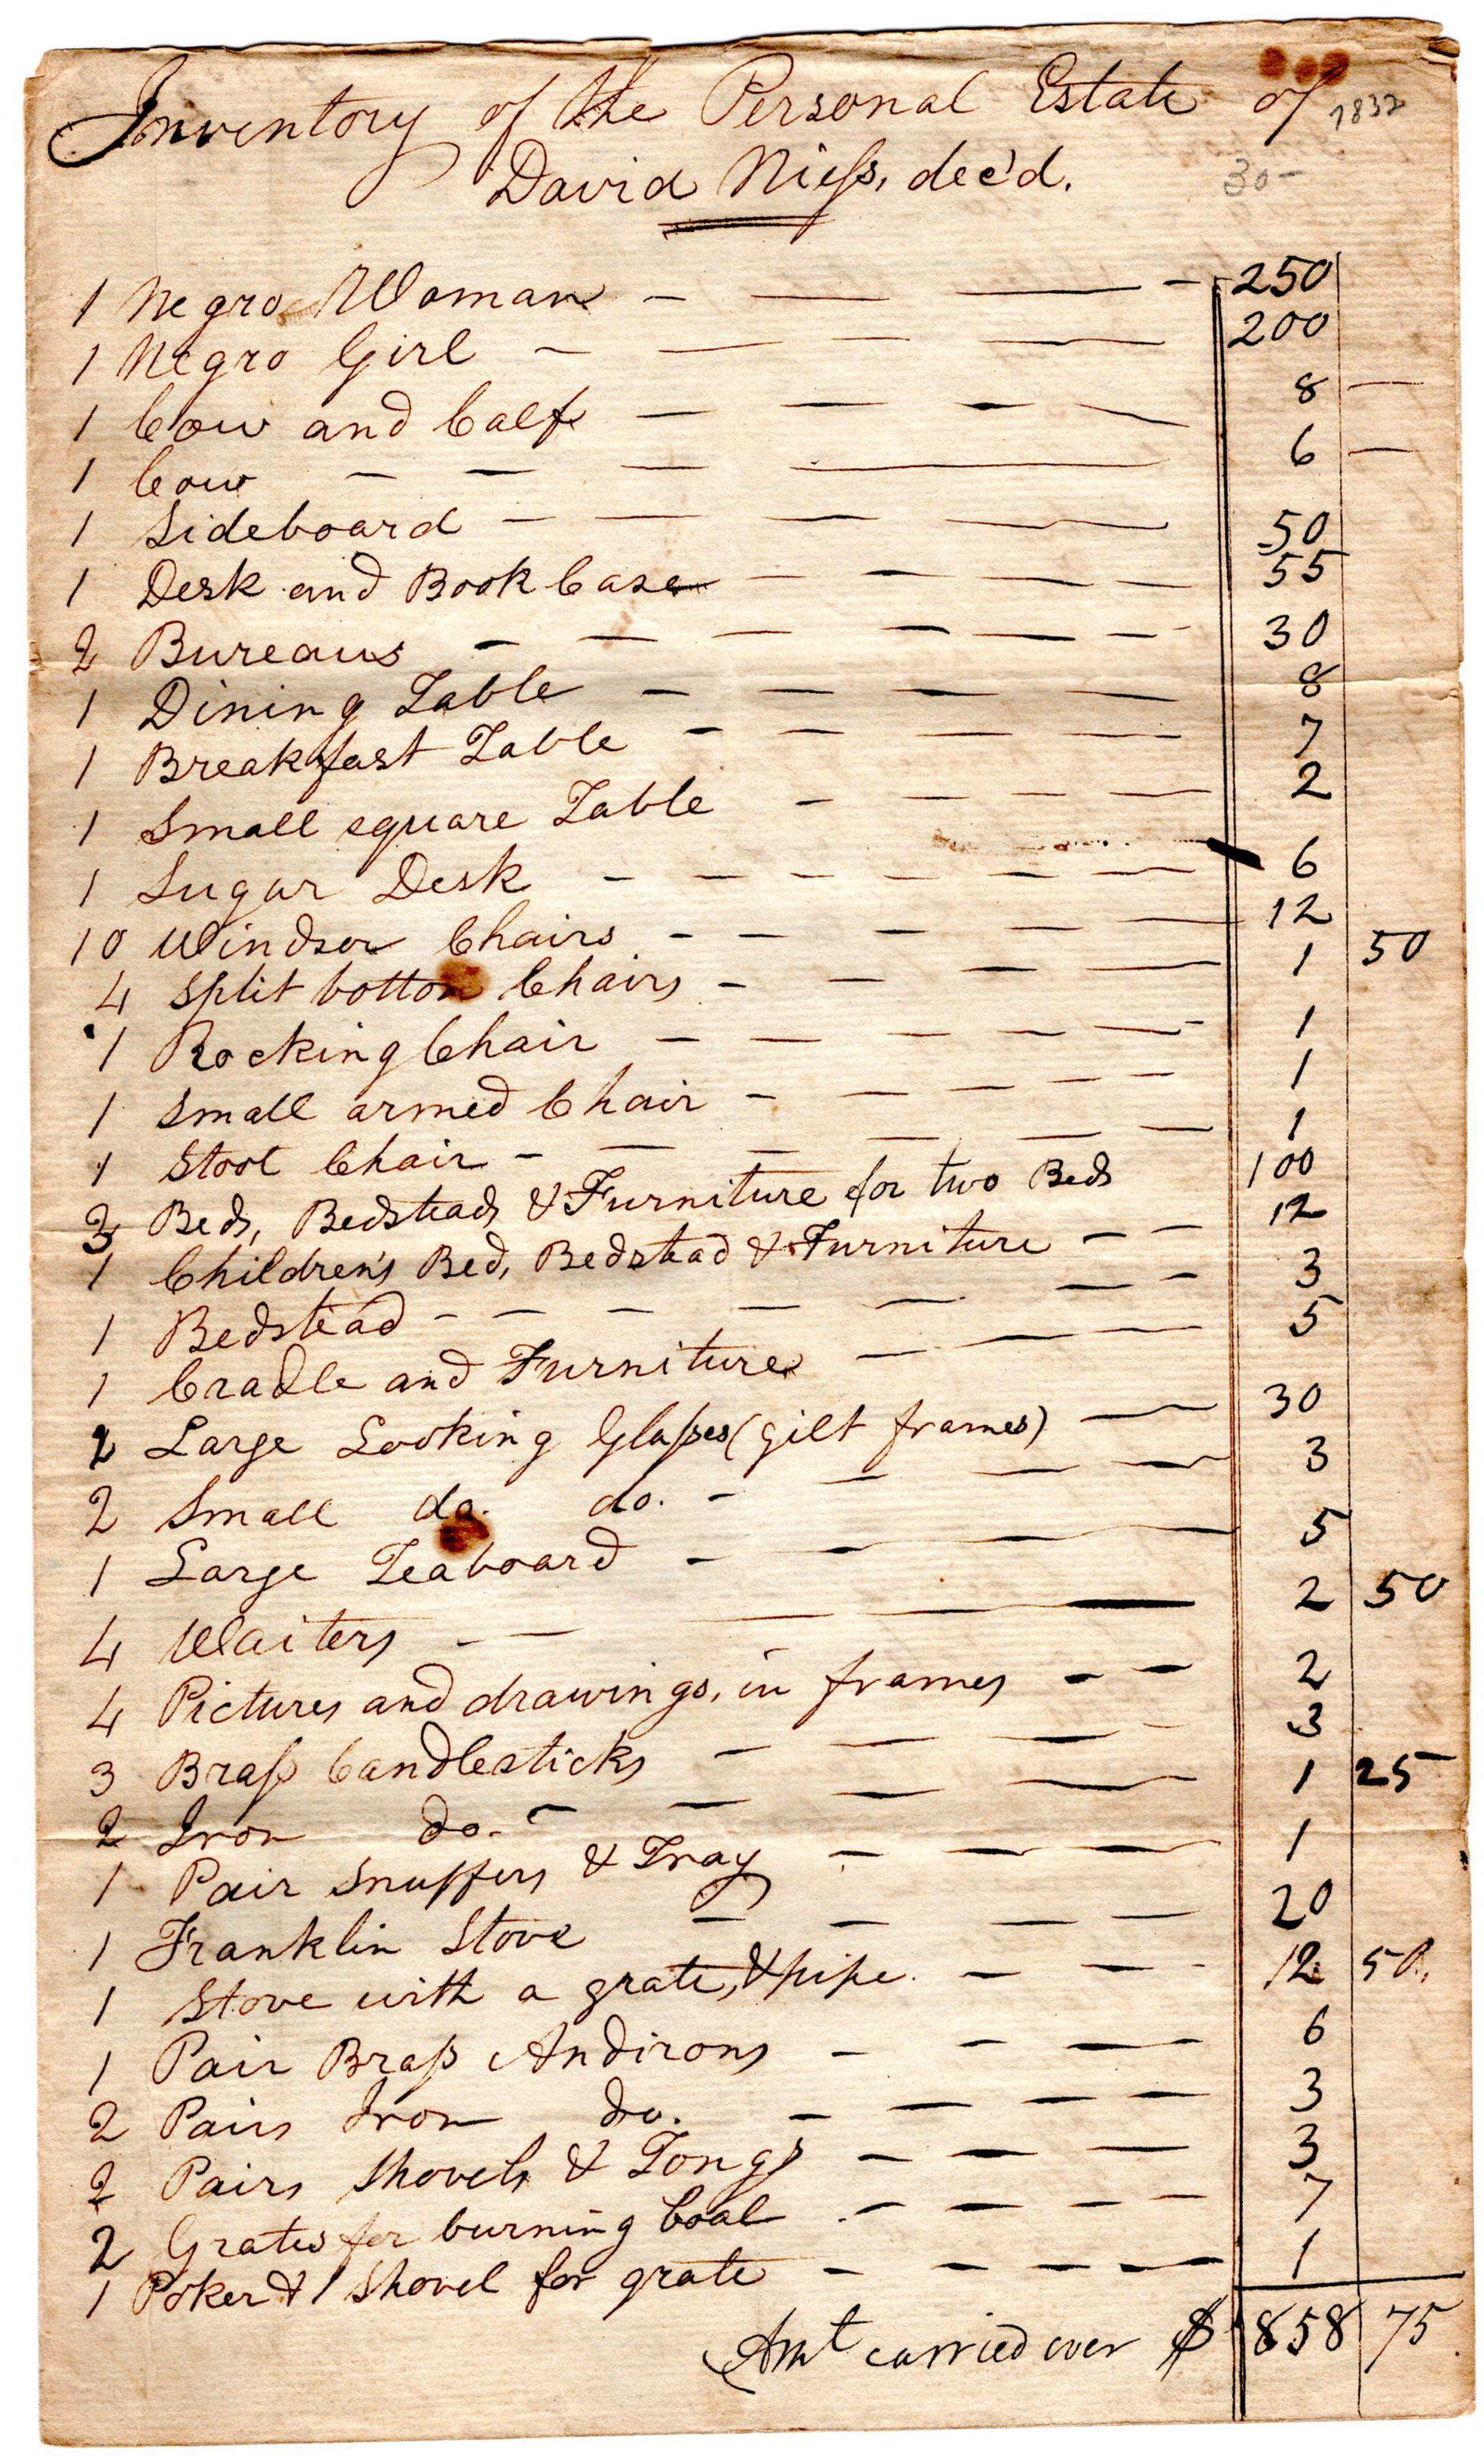 Inventory of the Personal Estate of 1832
David Niess, dec'd. 30-
1 Negro Woman — 250
1 Negro Girl — 200
1 Cow and Calf — 8 —
1 Cow — 6 —
1 Sideboard — 50
1 Desk and Book Case — 55
2 Bureaus — 30
1 Dining Table — 8
1 Breakfast Table — 7
1 Small square Table — 2
1 Sugar Desk — 6
10 Windsor Chairs — 12
4 Split bottom Chairs — 1 50
1 Rocking Chair — 1
1 Small armed Chair — 1
1 Stool Chair — 1
3 Beds, Bedsteads & Furniture for two Beds 100
1 Children's Bed, Bedstead & Furniture — 12
1 Bedstead — 3
1 Cradle and Furniture — 5
2 Large Looking Glasses (gilt frames) — 30
2 Small do. do. — 3
1 Large Teaboard — 5
4 Waiters — 2 50
4 Pictures and drawings, in frames — 2
3 Brass Candlesticks — 3
2 Iron do. — 1 25
1 Pair Snuffers & Tray — 1
1 Franklin Stove — 20
1 Stove with a grate, & pipe. — 12 50
1 Pair Brass Andirons — 6
2 Pairs Iron do. — 3
2 Pairs Shovels & Tongs — 3
2 Grates for burning Coal — 7
1 Poker & 1 Shovel for grate — 1
Amt carried over $ 858 75